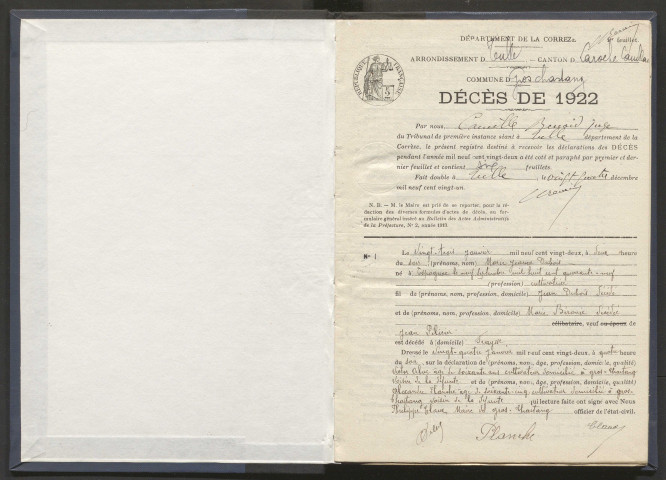 DÉPARTEMENT DE LA CORRÈZE.
feuillet.
ARRONDISSEMENT D Tulle — CANTON D Laroche Canillac
COMMUNE D Gros-Chastang
RÉPUBLIQUE FRANÇAISE
DÉCÈS DE 1922
Par nous, Juge
du Tribunal de première instance séant à Tulle département de la
Corrèze, le présent registre destiné à recevoir les déclarations des DÉCÈS
pendant l'année mil neuf cent vingt-deux a été coté et paraphé par premier et der-
nier feuillet et contient feuillets.
Fait double à Tulle, le décembre
mil neuf cent vingt-un.
N. B. — M. le Maire est prié de se reporter, pour la ré-
daction des diverses formules d'actes de décès, au for-
mulaire général inséré au Bulletin des Actes Administratifs
de la Préfecture, N° 2, année 1913.
N° 1
Le vingt-trois janvier mil neuf cent vingt-deux, à deux heure
du soir (prénoms, nom) Marie Jeanne Dubois
né à le neuf septembre mil huit cent quarante-neuf
(profession) cultivatrice
fil de (prénoms, nom, profession, domicile) Jean Dubois décédé
et de (prénoms, nom, profession, domicile) Marie décédée
célibataire, veuf ou époux de
Jean
est décédé à (domicile)
Dressé le vingt-quatre janvier mil neuf cent vingt-deux, à quatre heure
du soir, sur la déclaration de (prénoms, nom, âge, profession, domicile, qualité)
âgé de soixante ans cultivateur domicilié à Gros-Chastang
voisin de la défunte et de (prénoms, nom, âge, profession, domicile, qualité)
Planche âgé de soixante-cinq cultivateur domicilié à Gros-
Chastang voisin de la défunte qui lecture faite ont signé avec Nous
Philippe Maire de Gros-Chastang officier de l'état-civil.
Planche